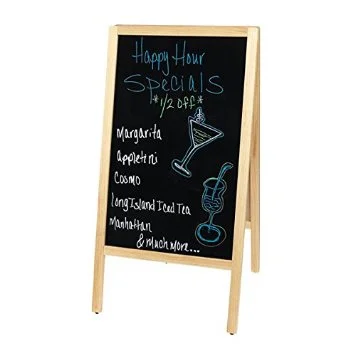 Happy Hour
Specials
*1/2 OFF*
Margarita
Appletini
Cosmo
Long Island Iced Tea
Manhattan
& Much More...